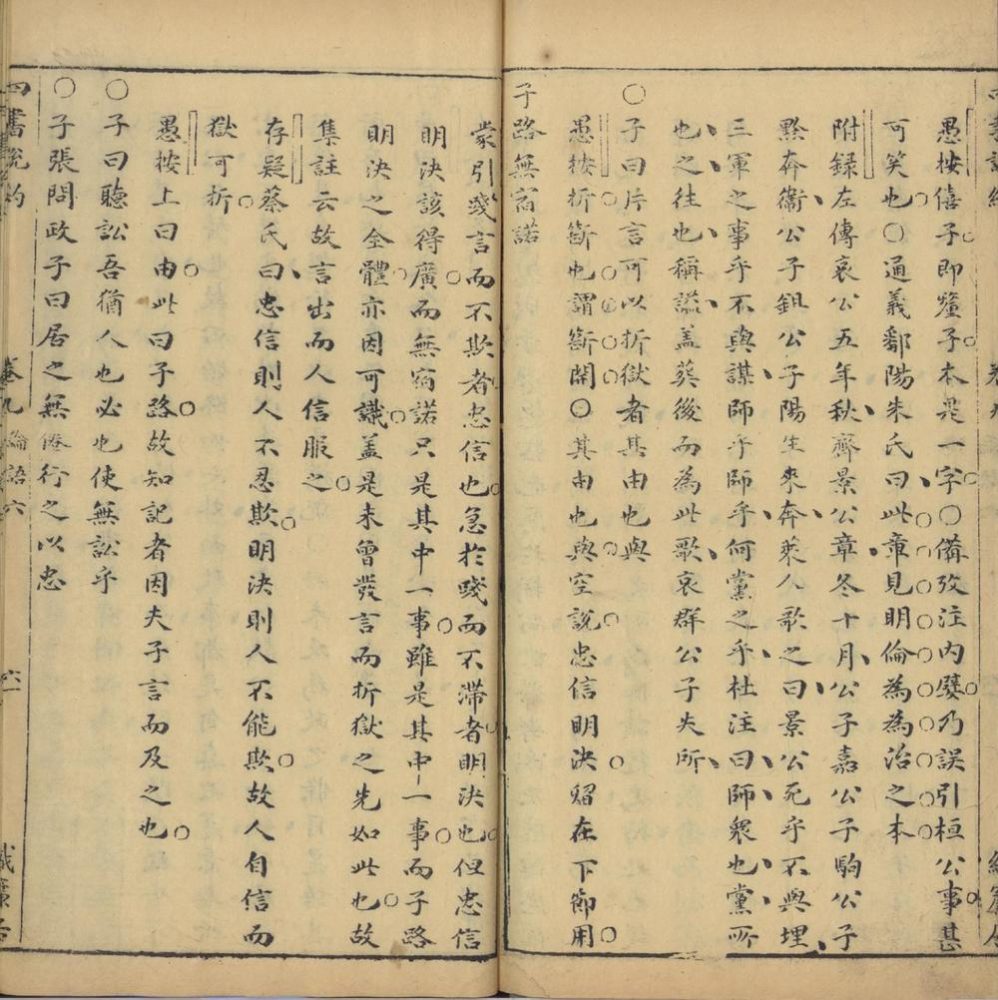 愚按僖子即釐子本是一字○備攷注内嬖乃誤引桓公事甚
可笑也○通義鄱陽朱氏曰此章見明倫為為治之本
附録左傳哀公五年秋齊景公章冬十月公子嘉公子駒公子
黔奔衞公子鉏公子陽生來奔萊人歌之曰景公死乎不與埋
三軍之事乎不與謀師乎師乎何黨之乎杜注曰師衆也黨所
也之往也稱謚盖葵後而為此歌哀群公子失所
○子曰片言可以折獄者其由也與
愚按折斷也謂斷開○其由也與空說忠信明决留在下節用
子路無宿諾
蒙引踐言而不欺者忠信也急於踐而不滯者明決也但忠信
明決該得廣而無宿諾只是其中一事雖是其中一事而子路
明決之全體亦因可識盖是未曾發言而折獄之先如此也故
集註云故言出而人信服之
存疑蔡氏曰忠信則人不忍欺明決則人不能欺故人自信而
獄可折
愚按上曰由此曰子路故知記者因夫子言而及之也
○子曰聽訟吾猶人也必也使無訟乎
○子張問政子曰居之無倦行之以忠
四書説約 卷九 論語六